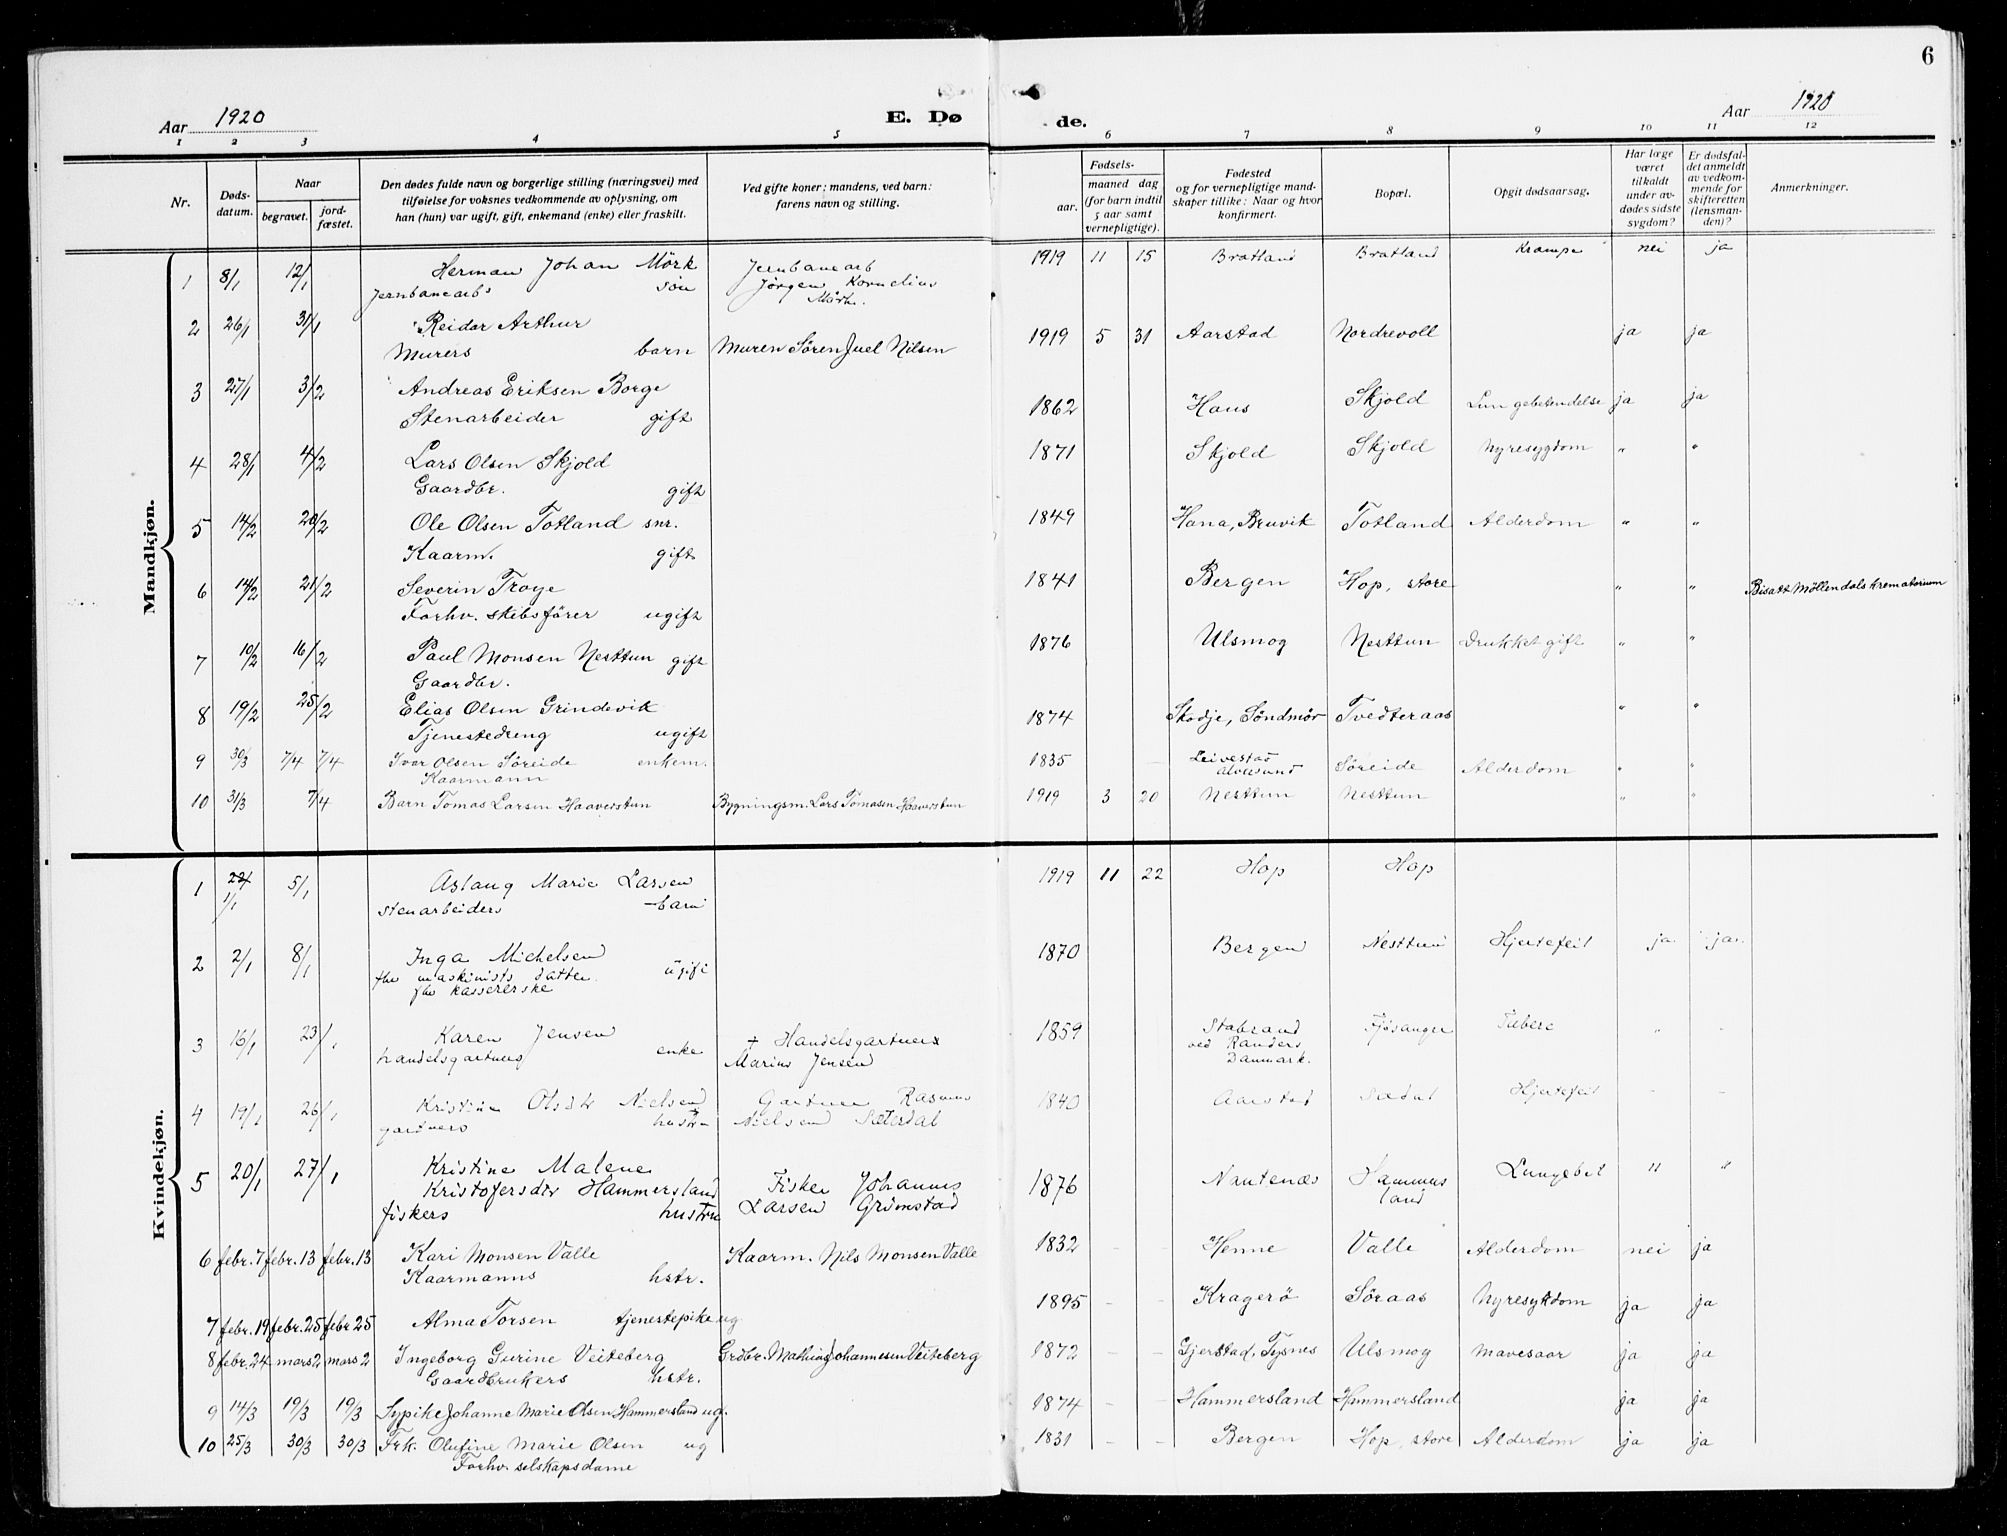 6
Aar 1920
E. Dø de.
Aar 1920
1 2 3 4 5 6 7 8 9 10 11 12
Nr.
Døds-datum.
Naar
begravet.
jord-fæstet.
Den dødes fulde navn og borgerlige stilling (næringsvei) med
tilføielse for voksnes vedkommende av oplysning, om
han (hun) var ugift, gift, enkemand (enke) eller fraskilt.
Ved gifte koner: mandens, ved barn:
farens navn og stilling.
Fødsels-
aar.
maaned dag
(for barn indtil
5 aar samt
vernepligtige).
Fødested
og for vernepligtige mand-
skaper tillike: Naar og hvor
konfirmert.
Bopæl.
Opgit dødsaarsag.
Har læge
været
tilkaldt
under av-
dødes sidste
sygdom?
Er dødsfal-
det anmeldt
av vedkom-
mende for
skifteretten
(lensman-
den)?
Anmerkninger.
Mandkjøn.
1 8/1 12/1 Herman Johan Mörk Jernbanearb 1919 11 15 Bratland Bratland Krampe nei ja
Jernbanearbs søn Jørgen Kornelius
Mörk.
2 26/1 31/1 Reidar Arthur 1919 5 31 Aarstad Nordrevoll ja ja
Murers barn Muren Sören Juel Nilsen
3 27/1 3/2 Andreas Eriksen Borge 1862 Haus Skjold Lungebetendelse ja ja
Stenarbeider gift
4 28/1 4/2 Lars Olsen Skjold 1871 Skjold Skjold Nyresygdom " "
Gaardbr. gift
5 14/2 20/2 Ole Olsen Totland snr. 1849 Hana, Bruvik Totland Alderdom " "
Kaarm. gift
6 14/2 21/2 Severin Troye 1841 Bergen Hop, store " " Bisatt Möllendals krematorium
Forhv. skibsförer ugift
7 10/2 16/2 Paul Monsen Nesttun gift 1876 Ulsmog Nesttun Drukket gift " "
Gaardbr.
8 19/2 25/2 Elias Olsen Grindevik 1874 Skodje, Söndmör Tvedteraas " "
Tjenestedreng ugift
9 30/3 7/4 7/4 Ivar Olsen Söreide enkem. 1835 Leivestad Söreide Alderdom " "
Kaarmann Alvesund
10 31/3 7/4 Barn Tomas Larsen Haaverstun Bygningsm. Lars Tomasen Haaverstun 1919 3 20 Nesttun Nesttun " "
Kvindekjøn.
1 1/1 5/1 Aslaug Marie Larsen 1919 11 22 Hop Hop
stenarbeiders barn
2 2/1 8/1 Inga Michelsen 1870 Bergen Nesttun Hjertefeil ja ja
fhv maskinists datter ugift
fhv kassererske
3 16/1 23/1 Karen Jensen + Handelsgartner 1859 Stabrand Fjösanger Tuberc " "
handelsgartners enke Marius Jensen ved Randers
Danmark.
4 19/1 26/1 Kristine Olsdtr Nielsen Gartner Rasmus 1840 Aarstad Hjertefeil
gartners hustru Nielsen Sæterdal
5 20/1 27/1 Kristine Malene 1876 Nautenæs Hammers Lungebet " "
Kristofersdtr Hammersland Fisker Johannes land
fiskers hustru Larsen Grimstad
6 febr. 7 febr. 13 febr. 13 Kari Monsen Valle Kaarm. Nils Monsen Valle 1832 – – Henne Valle Alderdom nei ja
Kaarmanns hstr.
7 febr. 19 febr. 25 febr 25 Alma Torsen tjenestepike ug 1895 – – Kragerö Söraas Nyresykdom ja ja
8 febr. 24 mars 2 mars 2 Ingeborg Gurine Veiteberg Grdbr. Mathias Johannesen Veiteberg 1872 – – Gjerstad, Tysnes Ulsmog Mavesaar ja ja
Gaardbrukers hstr.
9 14/3 19/3 19/3 Sypike Johanne Marie Olsen Hammersland ug. 1874 – – Hammersland Hammersland ja ja
10 25/3 30/3 30/3 Frk. Olufine Marie Olsen ug 1831 – – Bergen Hop, store Alderdom ja ja
Forhv. selskapsdame